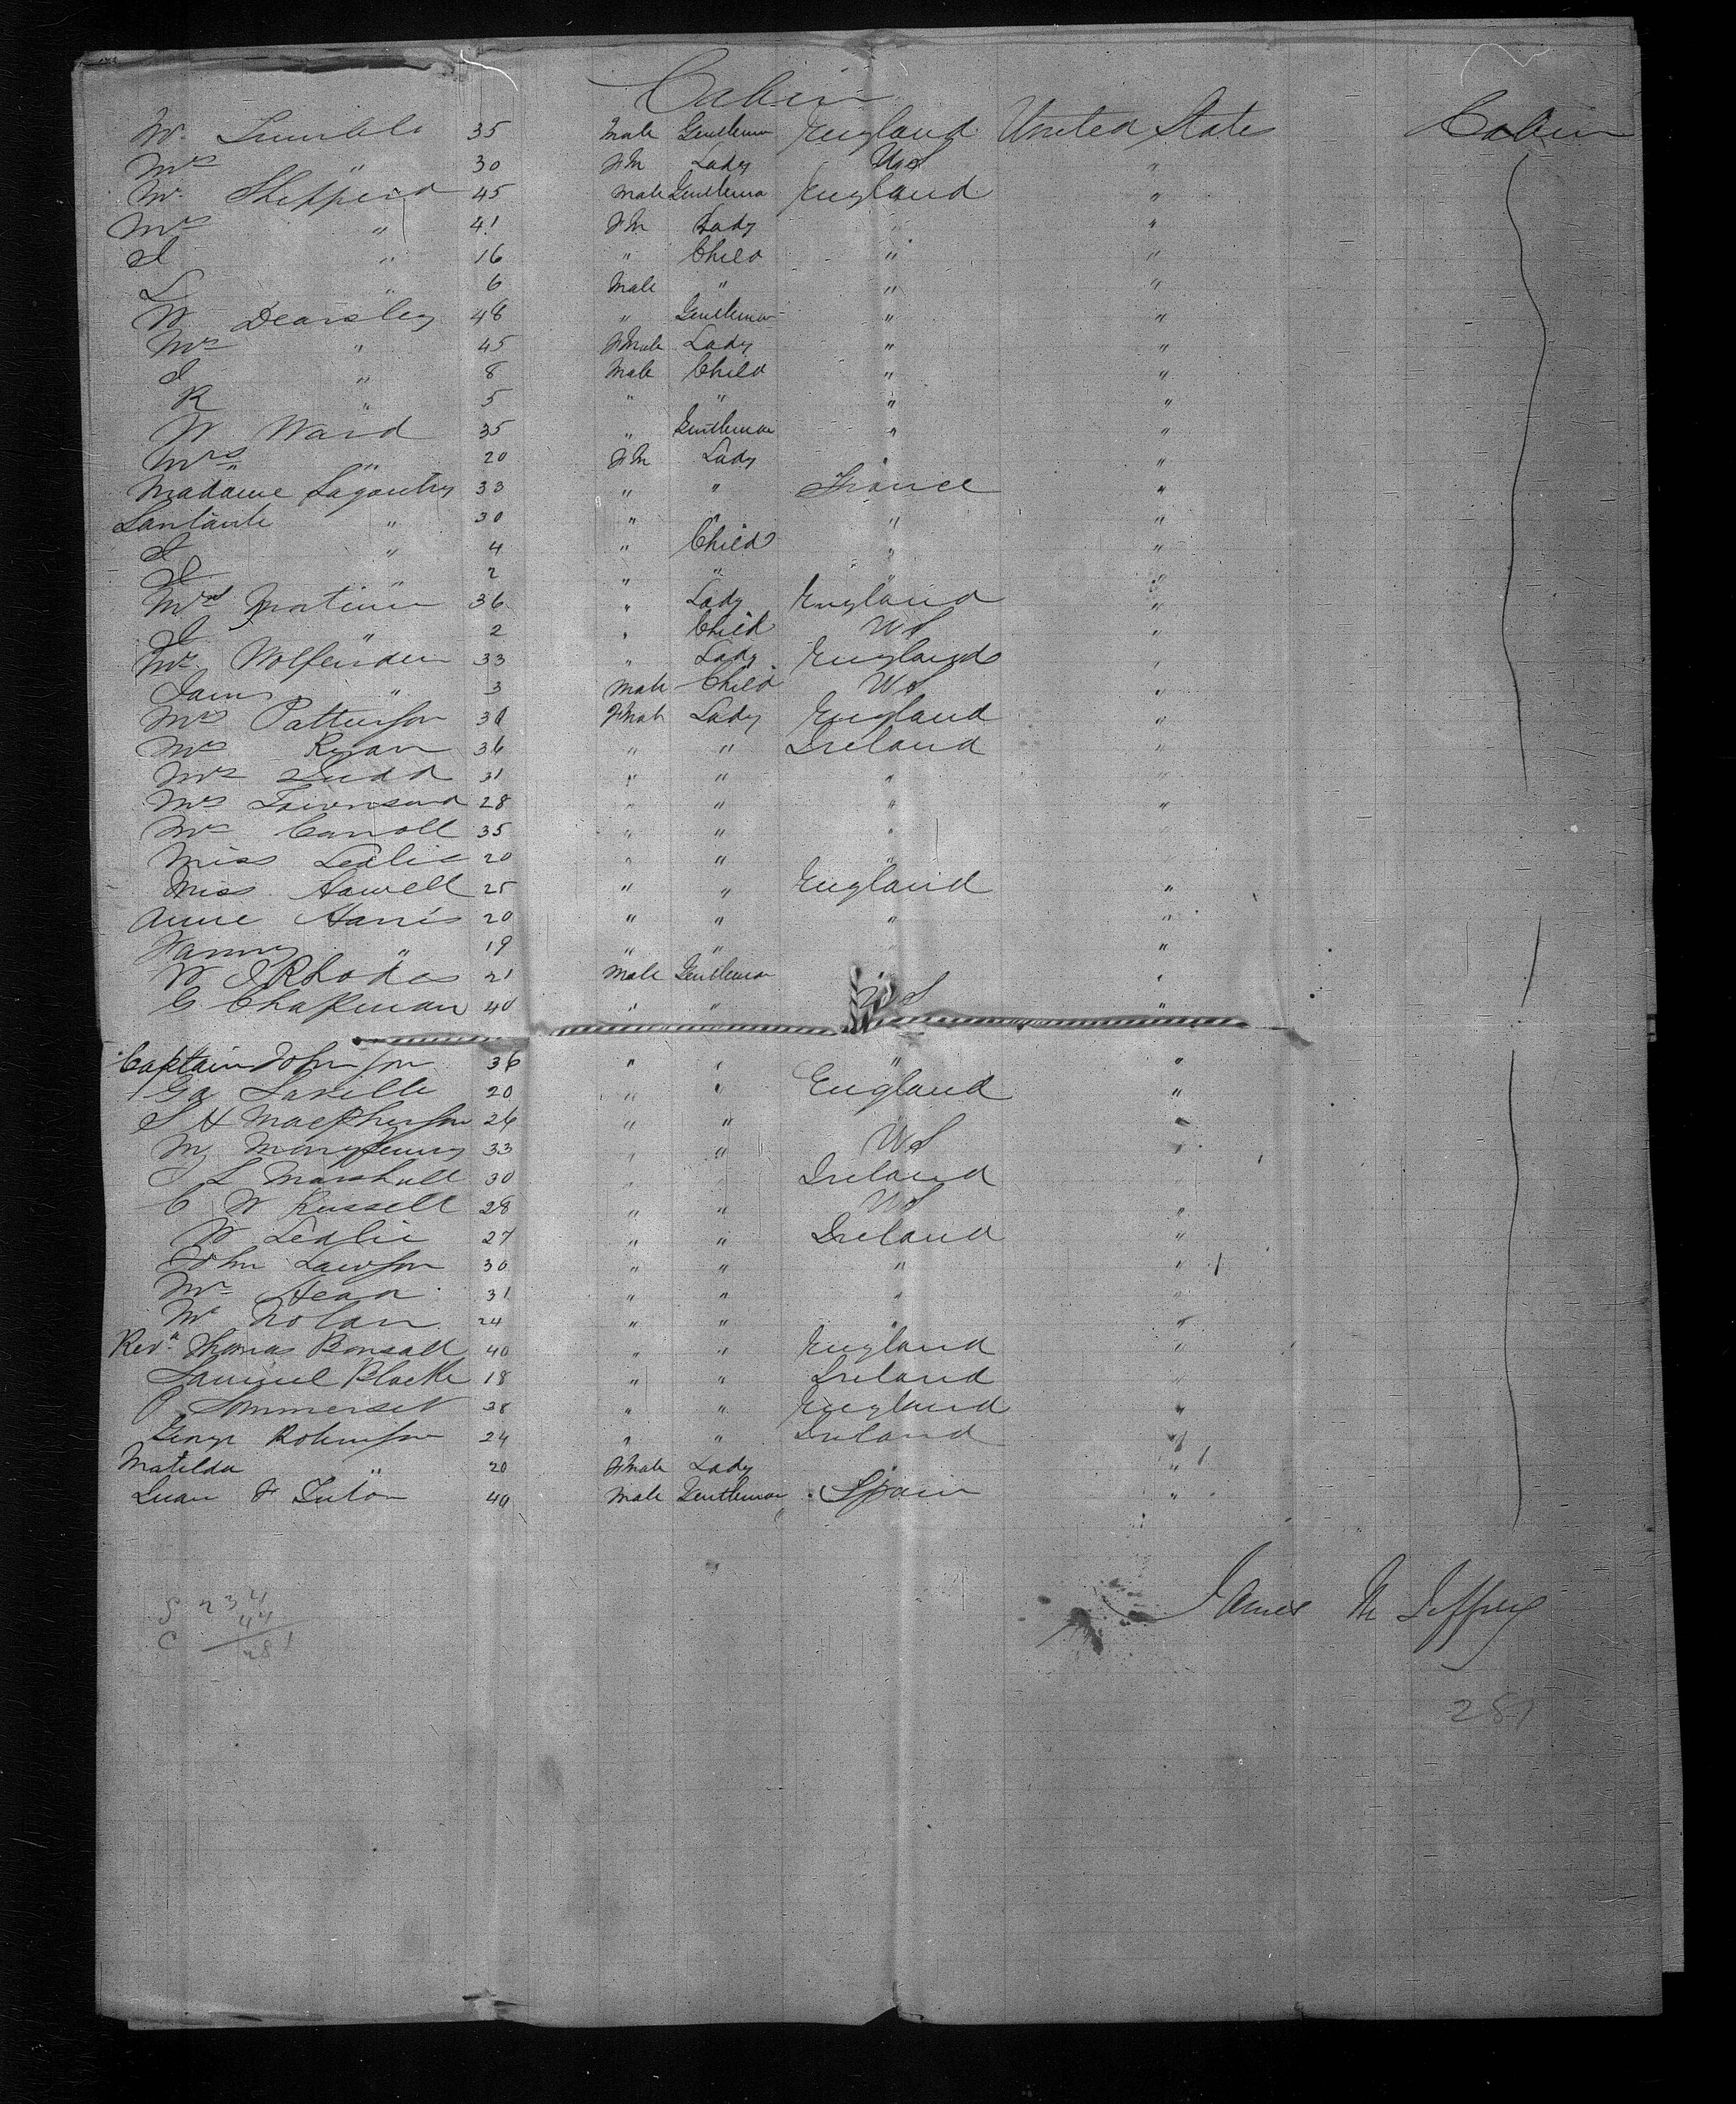 Cabin
W. 35 Male Gentleman England United States Cabin
Mrs " 30 FM Lady US "
W. Shepperd 45 Male Gentleman England "
Mrs " 41 FM Lady " "
" 16 " Child " "
L " 6 Male " " "
W Dearsley 48 " Gentleman " "
Mrs " 45 FMale Lady " "
" 8 Male Child " "
R " 5 " " " "
W Ward 35 " Gentleman " "
Mrs " 20 FM Lady " "
Madame 33 " " France "
" 30 " " " "
" 4 " Child " "
" 2 " " " "
Mrs 36 " Lady England "
" 2 " Child US "
Mrs Wolfenden 33 " Lady England "
" 3 Male Child US "
Mrs Patterson FMale Lady England "
Mrs Ryan 36 " " Ireland "
Mrs Judd 31 " " " "
Mrs Townsend 28 " " " "
Mrs Carroll 35 " " "
Miss Ledlie 20 " " "
Miss Howell 25 " " England "
Anne Harris 20 " " " "
Fanny " 19 " " " "
W J Rhodes 21 Male Gentleman "
G Chapman 40 " " US "
Captain Johnson 36 " " " "
Saville 20 " " England "
S H Macpherson 26 " " "
M 33 " " US "
L Marshall 30 " " Ireland
C W Russell 28 " " US "
W Ledlie 27 " " Ireland "
John Lawson 30 " " " "
Mr Head 31 " " " "
Mr Nolan 24 " " " "
Revd Thomas Bonsall 40 " " England "
Samuel Blacke 18 " " Ireland "
Sommerset 28 " " England "
George Robinson 24 " " Ireland "
Matilda " 20 FMale Lady " "
Juan F 40 Male Gentleman Spain "
S 234
C 47
281
James M Jeffrey
281